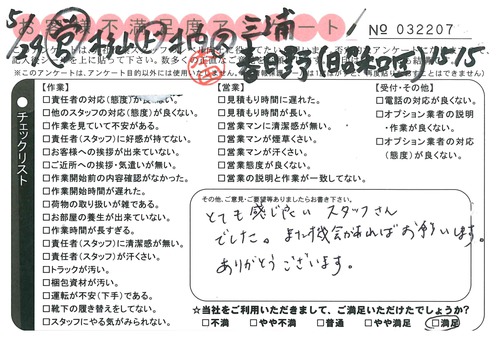 お客様不満足度アンケート
No 032207
チェックリスト
【作業】
□責任者の対応(態度)が良くない。
□他のスタッフの対応(態度)が良くない。
□作業を見ていて不安がある。
□責任者(スタッフ)に好感が持てない。
□お客様への挨拶が出来ていない。
□ご近所への挨拶・気遣いが無い。
□作業開始前の内容確認がなかった。
□作業開始時間が遅れた。
□荷物の取り扱いが雑である。
□お部屋の養生が出来ていない。
□作業時間が長すぎる。
□責任者(スタッフ)に清潔感が無い。
□責任者(スタッフ)が汗くさい。
□トラックが汚い。
□梱包資材が汚い。
□運転が不安(下手)である。
□靴下の履き替えをしてない。
□スタッフにやる気がみられない。
【営業】
□見積もり時間に遅れた。
□見積もり時間が長い。
□営業マンに清潔感が無い。
□営業マンが煙草くさい。
□営業マンが汗くさい。
□営業態度が良くない。
□営業の説明と作業が一致してない。
【受付・その他】
□電話の対応が良くない。
□オプション業者の説明
・作業が良くない。
□オプション業者の対応
(態度)が良くない。
その他、ご意見・ご要望等ありましたらお書き下さい。
とても感じ良いスタッフさん
でした。また機会があればお願いします。
ありがとうございます。
☆当社をご利用いただきまして、ご満足いただけたでしょうか?
□不満 □やや不満 □普通 □やや満足 □満足